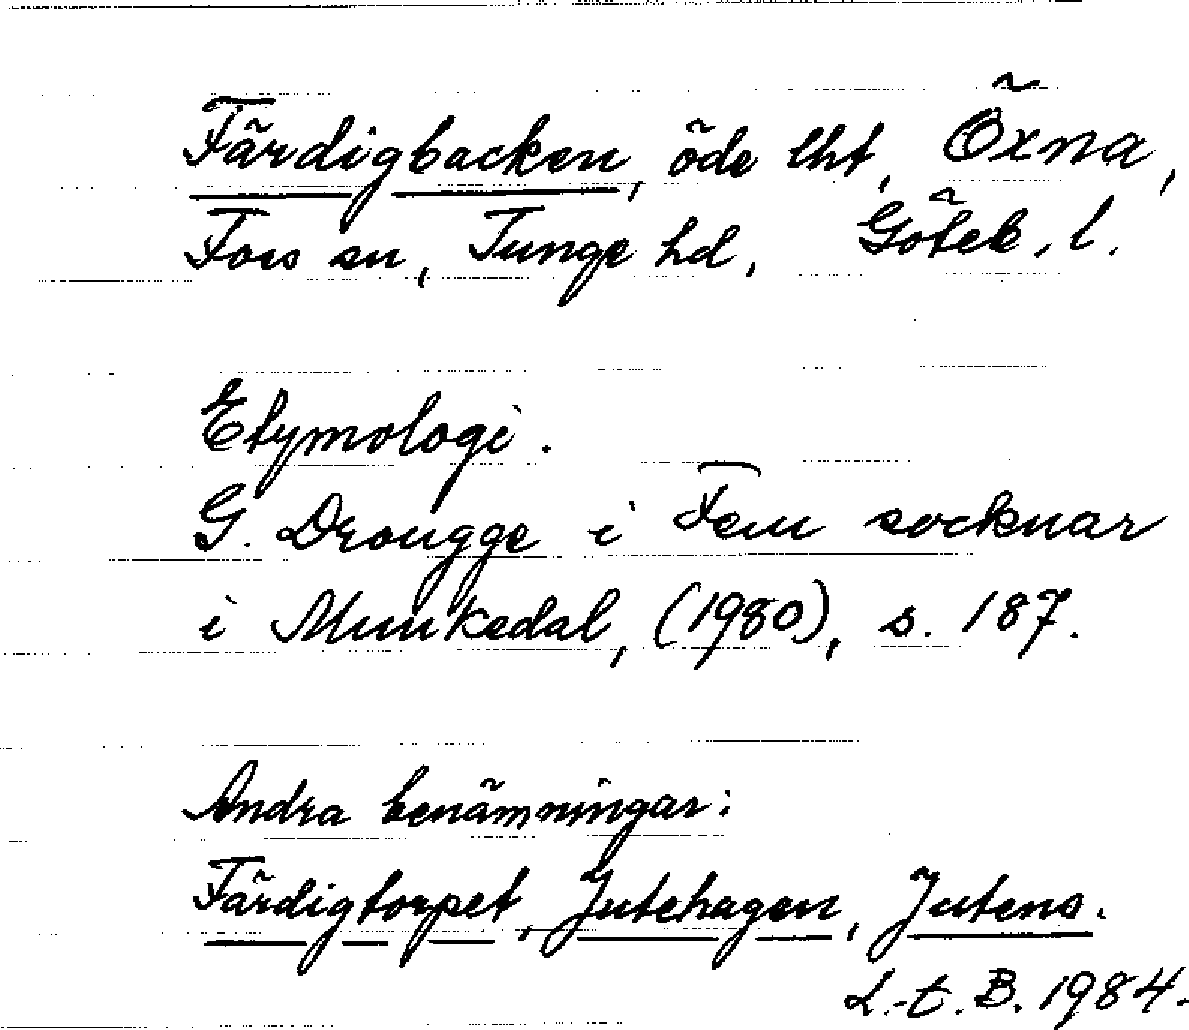 Färdigbacken, öde lht, Öxna,
Foss sn, Tunge hd, Göteb. l.
Etymologi.
G. Drougge i Fem socknar
i Munkedal, (1980), s. 187.
Andra benämningar:
Färdigtorpet, Jutehagen, Jutens.
L.-t. B. 1984.